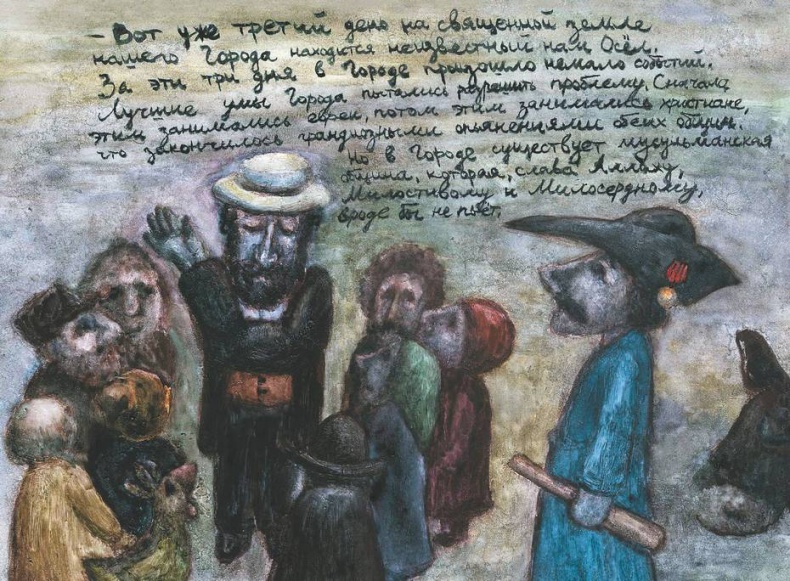 - Вот уже третий день на священной земле
нашего Города находится неизвестный нам Осёл.
За эти три дня в Городе произошло немало событий.
Лучшие умы Города пытались разрешить проблему. Сначала
этим занимались евреи, потом этим занимались христиане,
что закончилось грандиозными опьянениями обеих общин.
Но в Городе существует мусульманская
община, которая, слава Аллаху,
Милостивому и Милосердному,
вроде бы не пьёт.